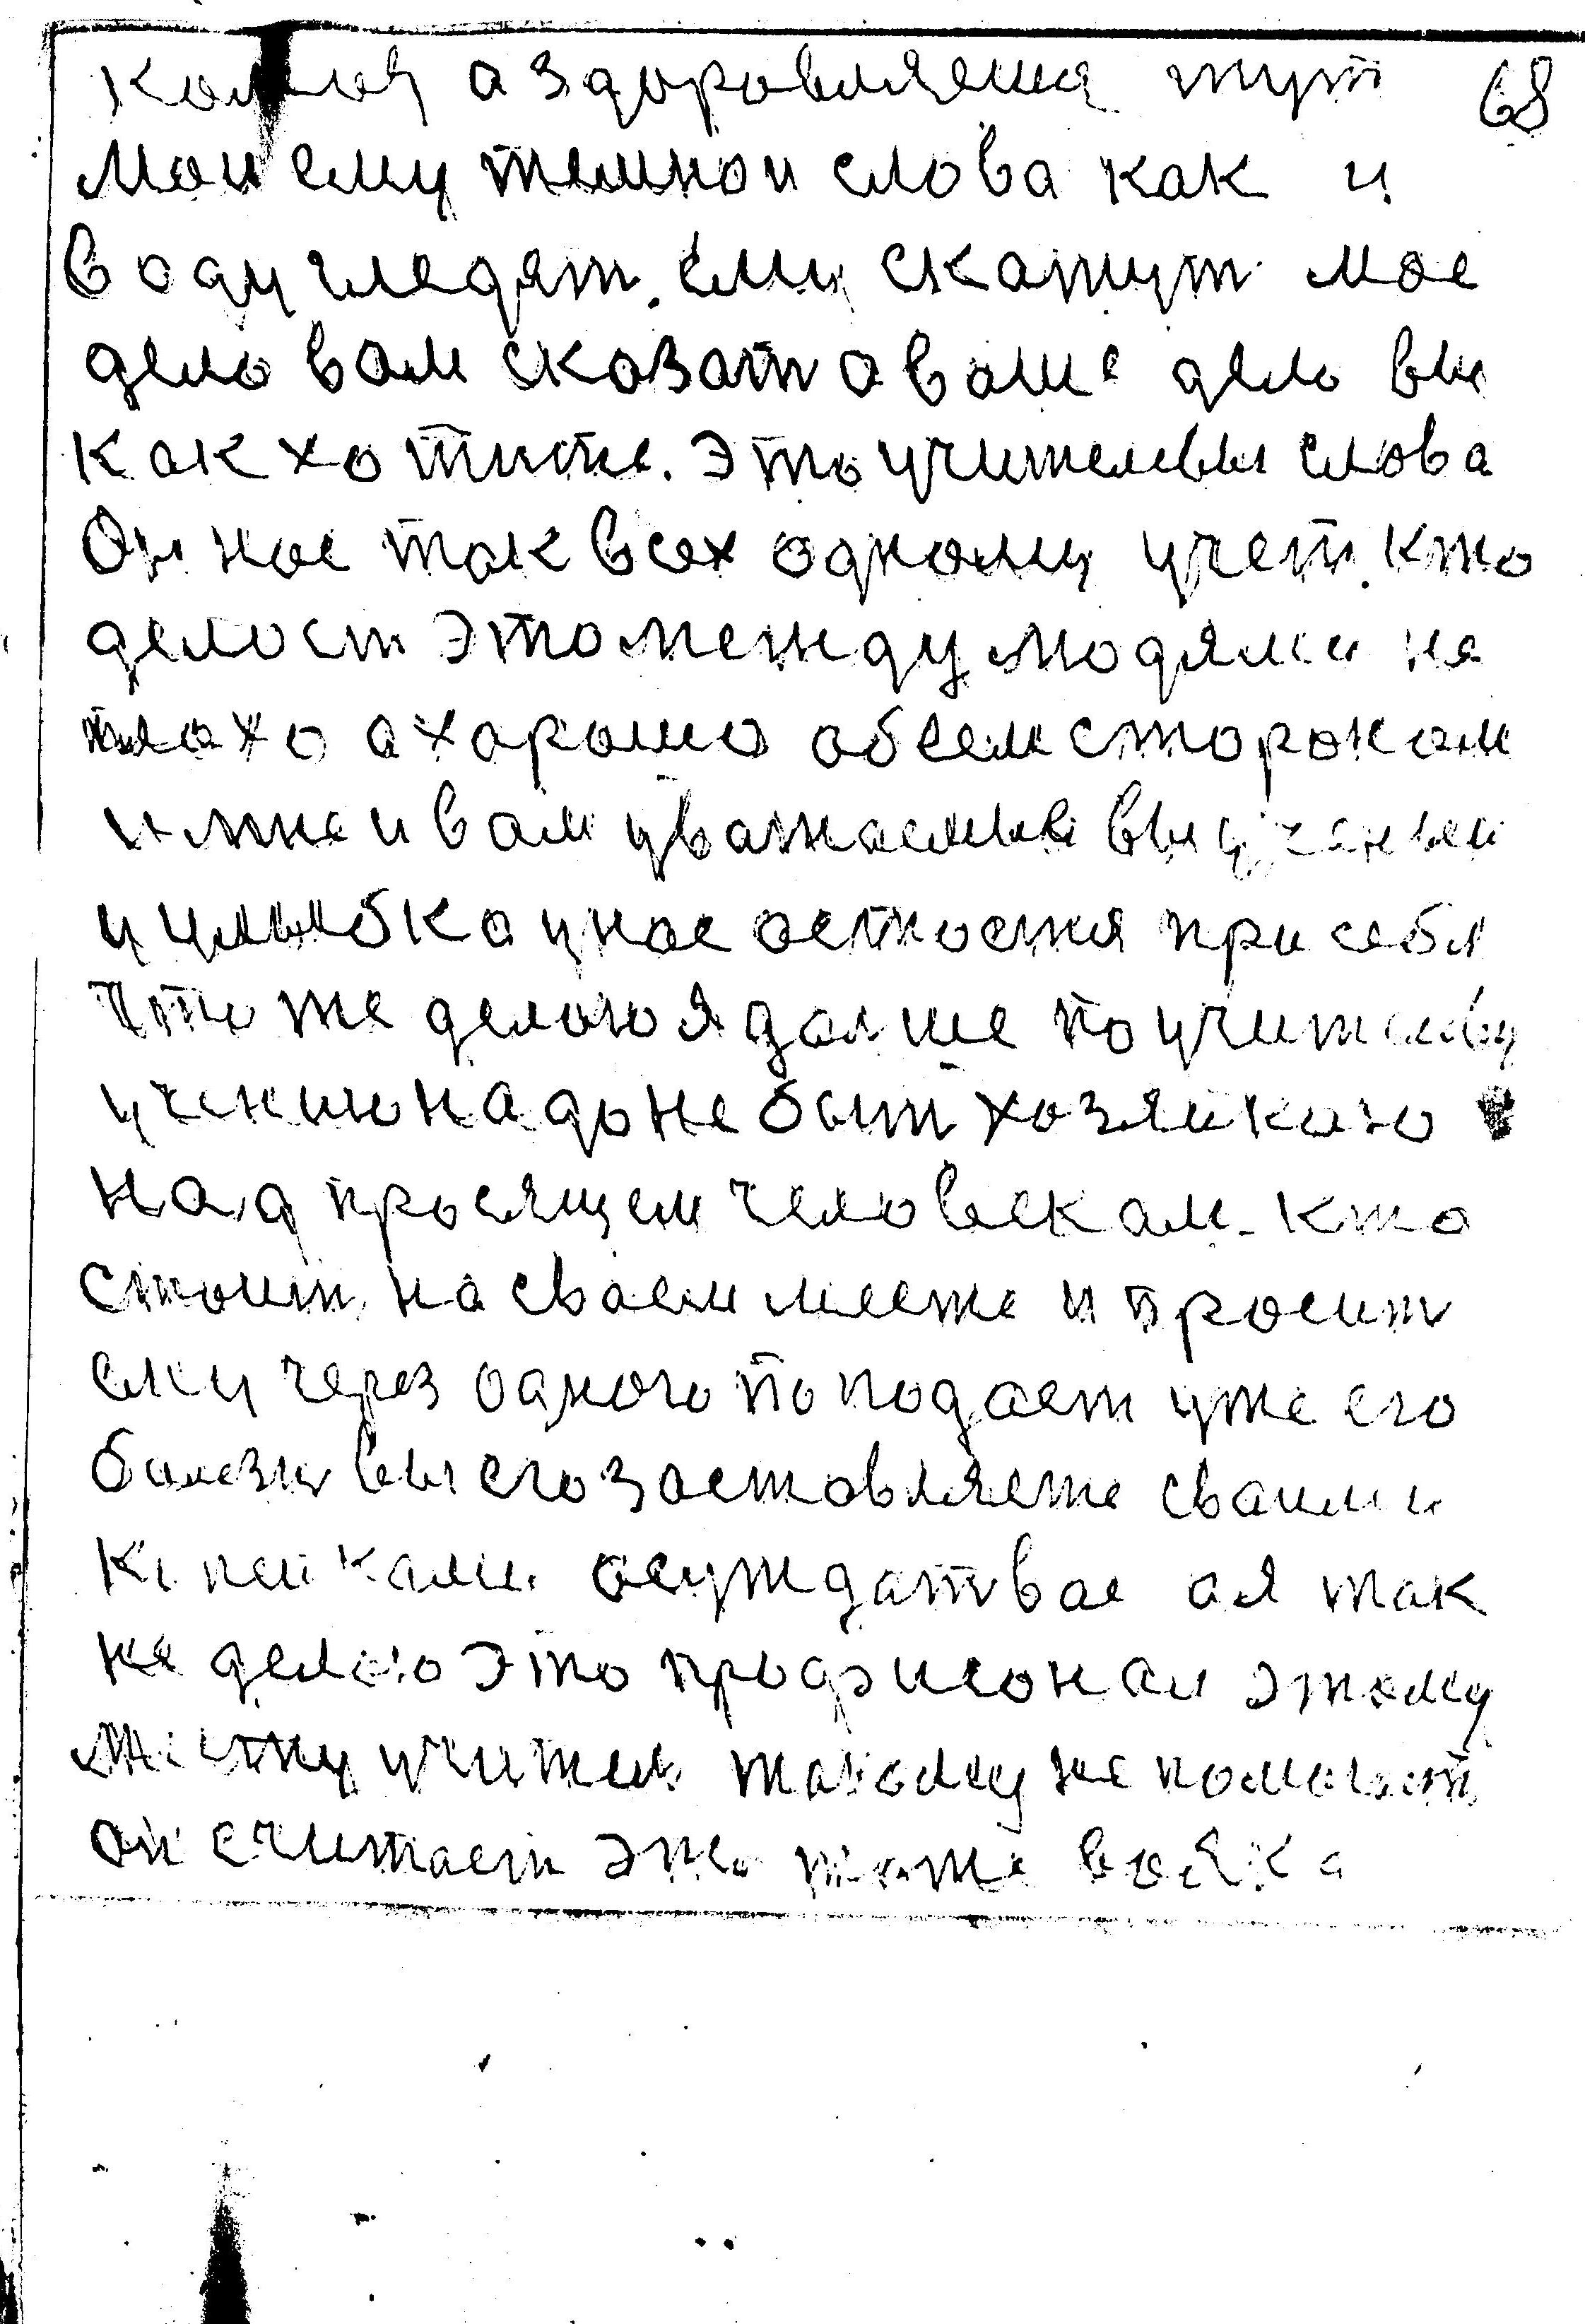 а здоровляеша тут 68
мои ему темнои слова как и
в оду гледят. ему скажут мое
дело вам сказат а ваше дело вы
как хотите. Это учителевы слова
Он нас так всех одному учет. кто
делоет это между людями не
плохо а харашо обеем сторонам
и мне и вам уважаемыи вы ученыи
и улыбка у нас остноется при себя
Что же делаю я далше по учителеву
учению надо не быт хозяйкаю
над просящем человекам. кто
стоит на сваем месте и просит
ему через одного попадает уже его
болезн вы его заставляете сваими
копейками осуждат вас а я так
не делаю это профисонал этому
месту учител такому не помогает
он считает это тоже